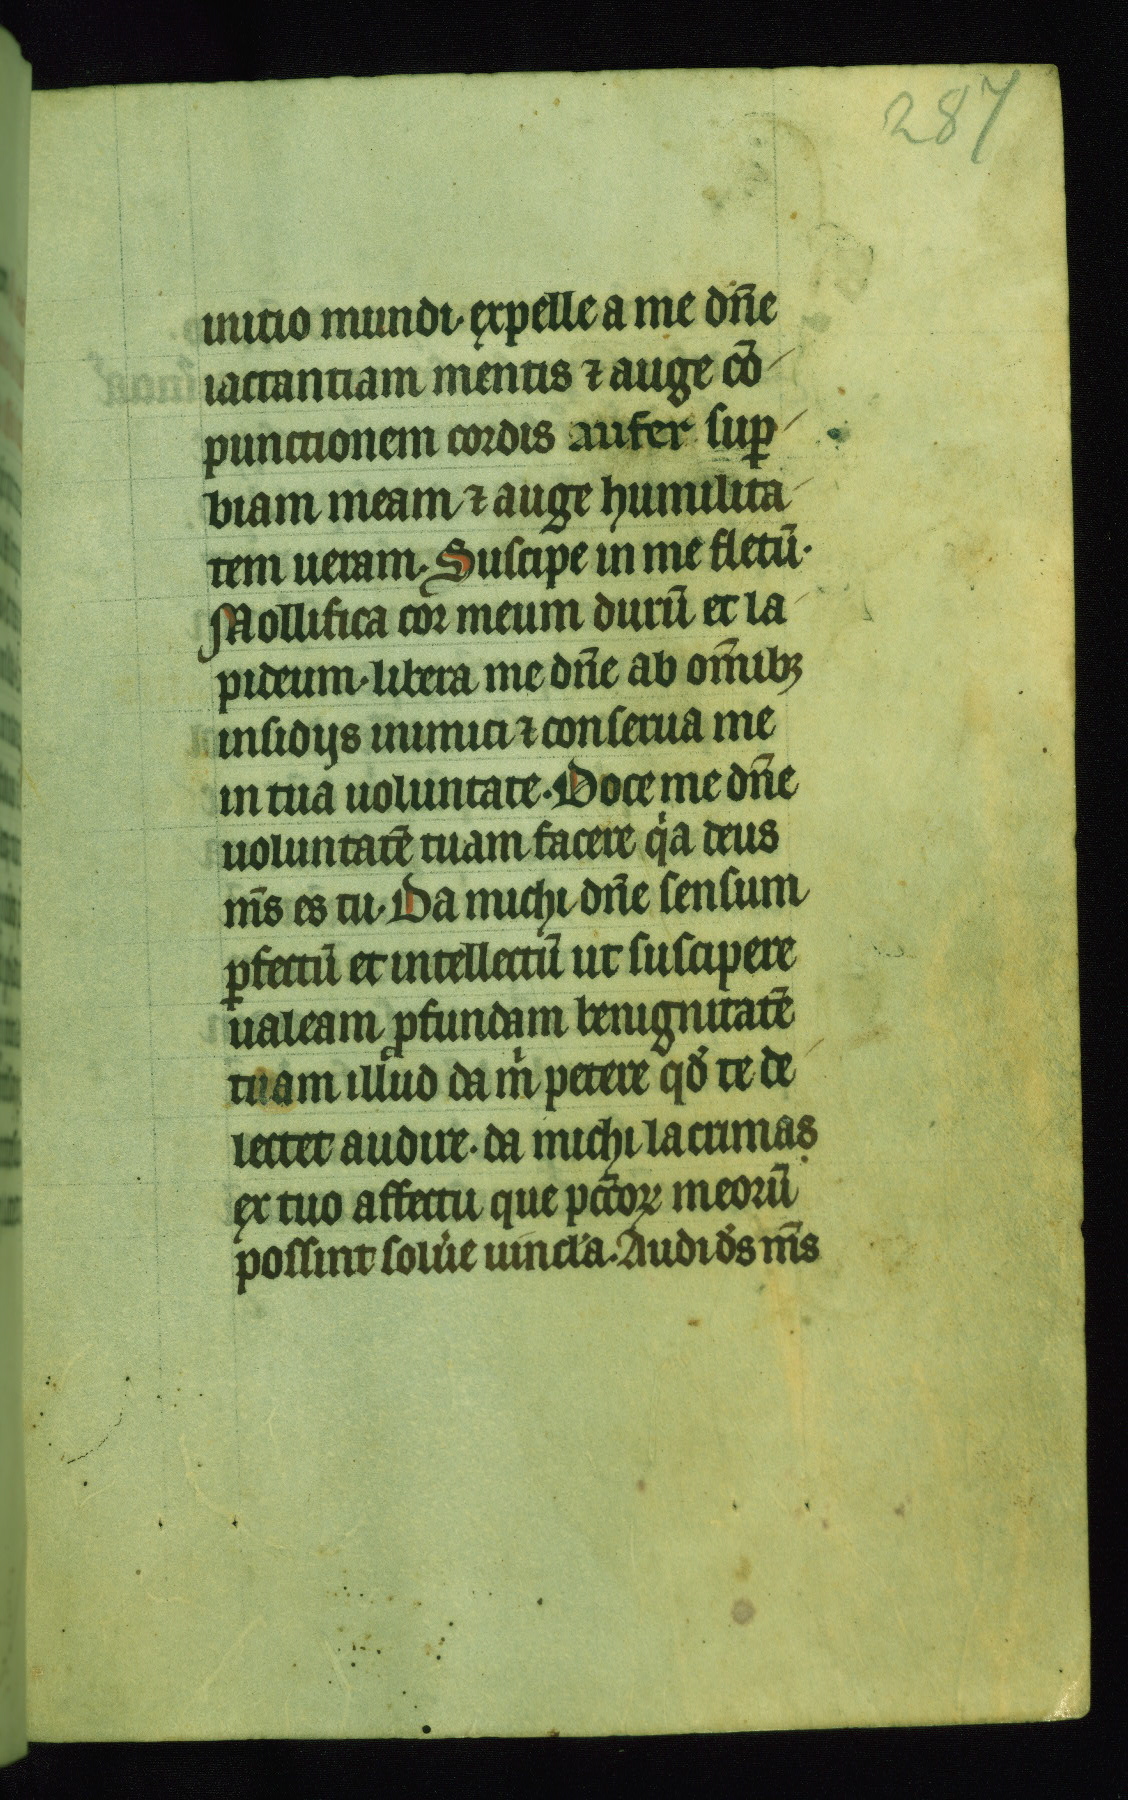 287
initio mundi· expelle a me dn̄e
iactantiam mentis ⁊ auge cō-
punctionem cordis aufer suꝑ-
biam meam ⁊ auge humilita-
tem ueram· Suscipe in me fletū·
Mollifica cor meum durū et la-
pideum· libera me dn̄e ab om̄ibꝫ
insidijs inimici ⁊ conserua me
in tua uoluntate· Doce me dn̄e
uoluntatē tuam facere qͥa deus
m̄s es tu· Da michi dn̄e sensum
ꝑfectū et intellectū ut suscipere
ualeam ꝓfundam benignitatē
tuam illud da mͥ petere qđ te de-
lectet audire· da michi lacrimas
ex tuo affectu que pcc̄oꝝ meorū
possint solu͛e uincla· Audi ds̄ m̄s